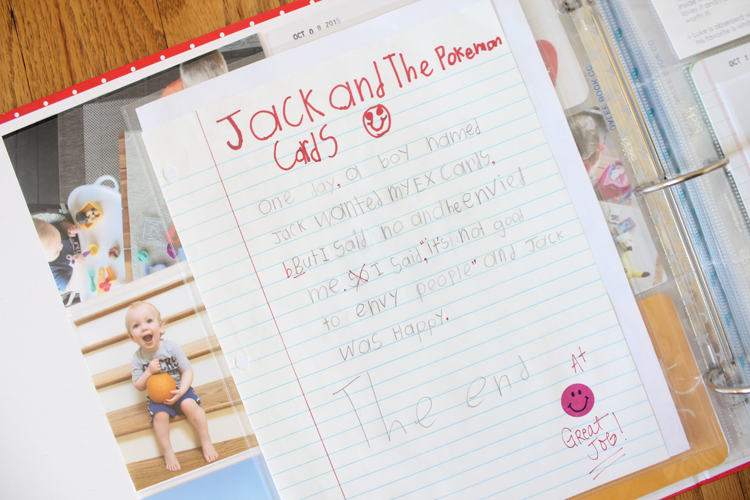 OCT 0 8 2015
Jack and The Pokemon
Cards
one day, a boy named
Jack wanted my EX Cards,
bBut I said no and he envied
me. So I said, "it's not good
to envy people" and Jack
was Happy.
The end
A+
Great
Job!
OCT 1